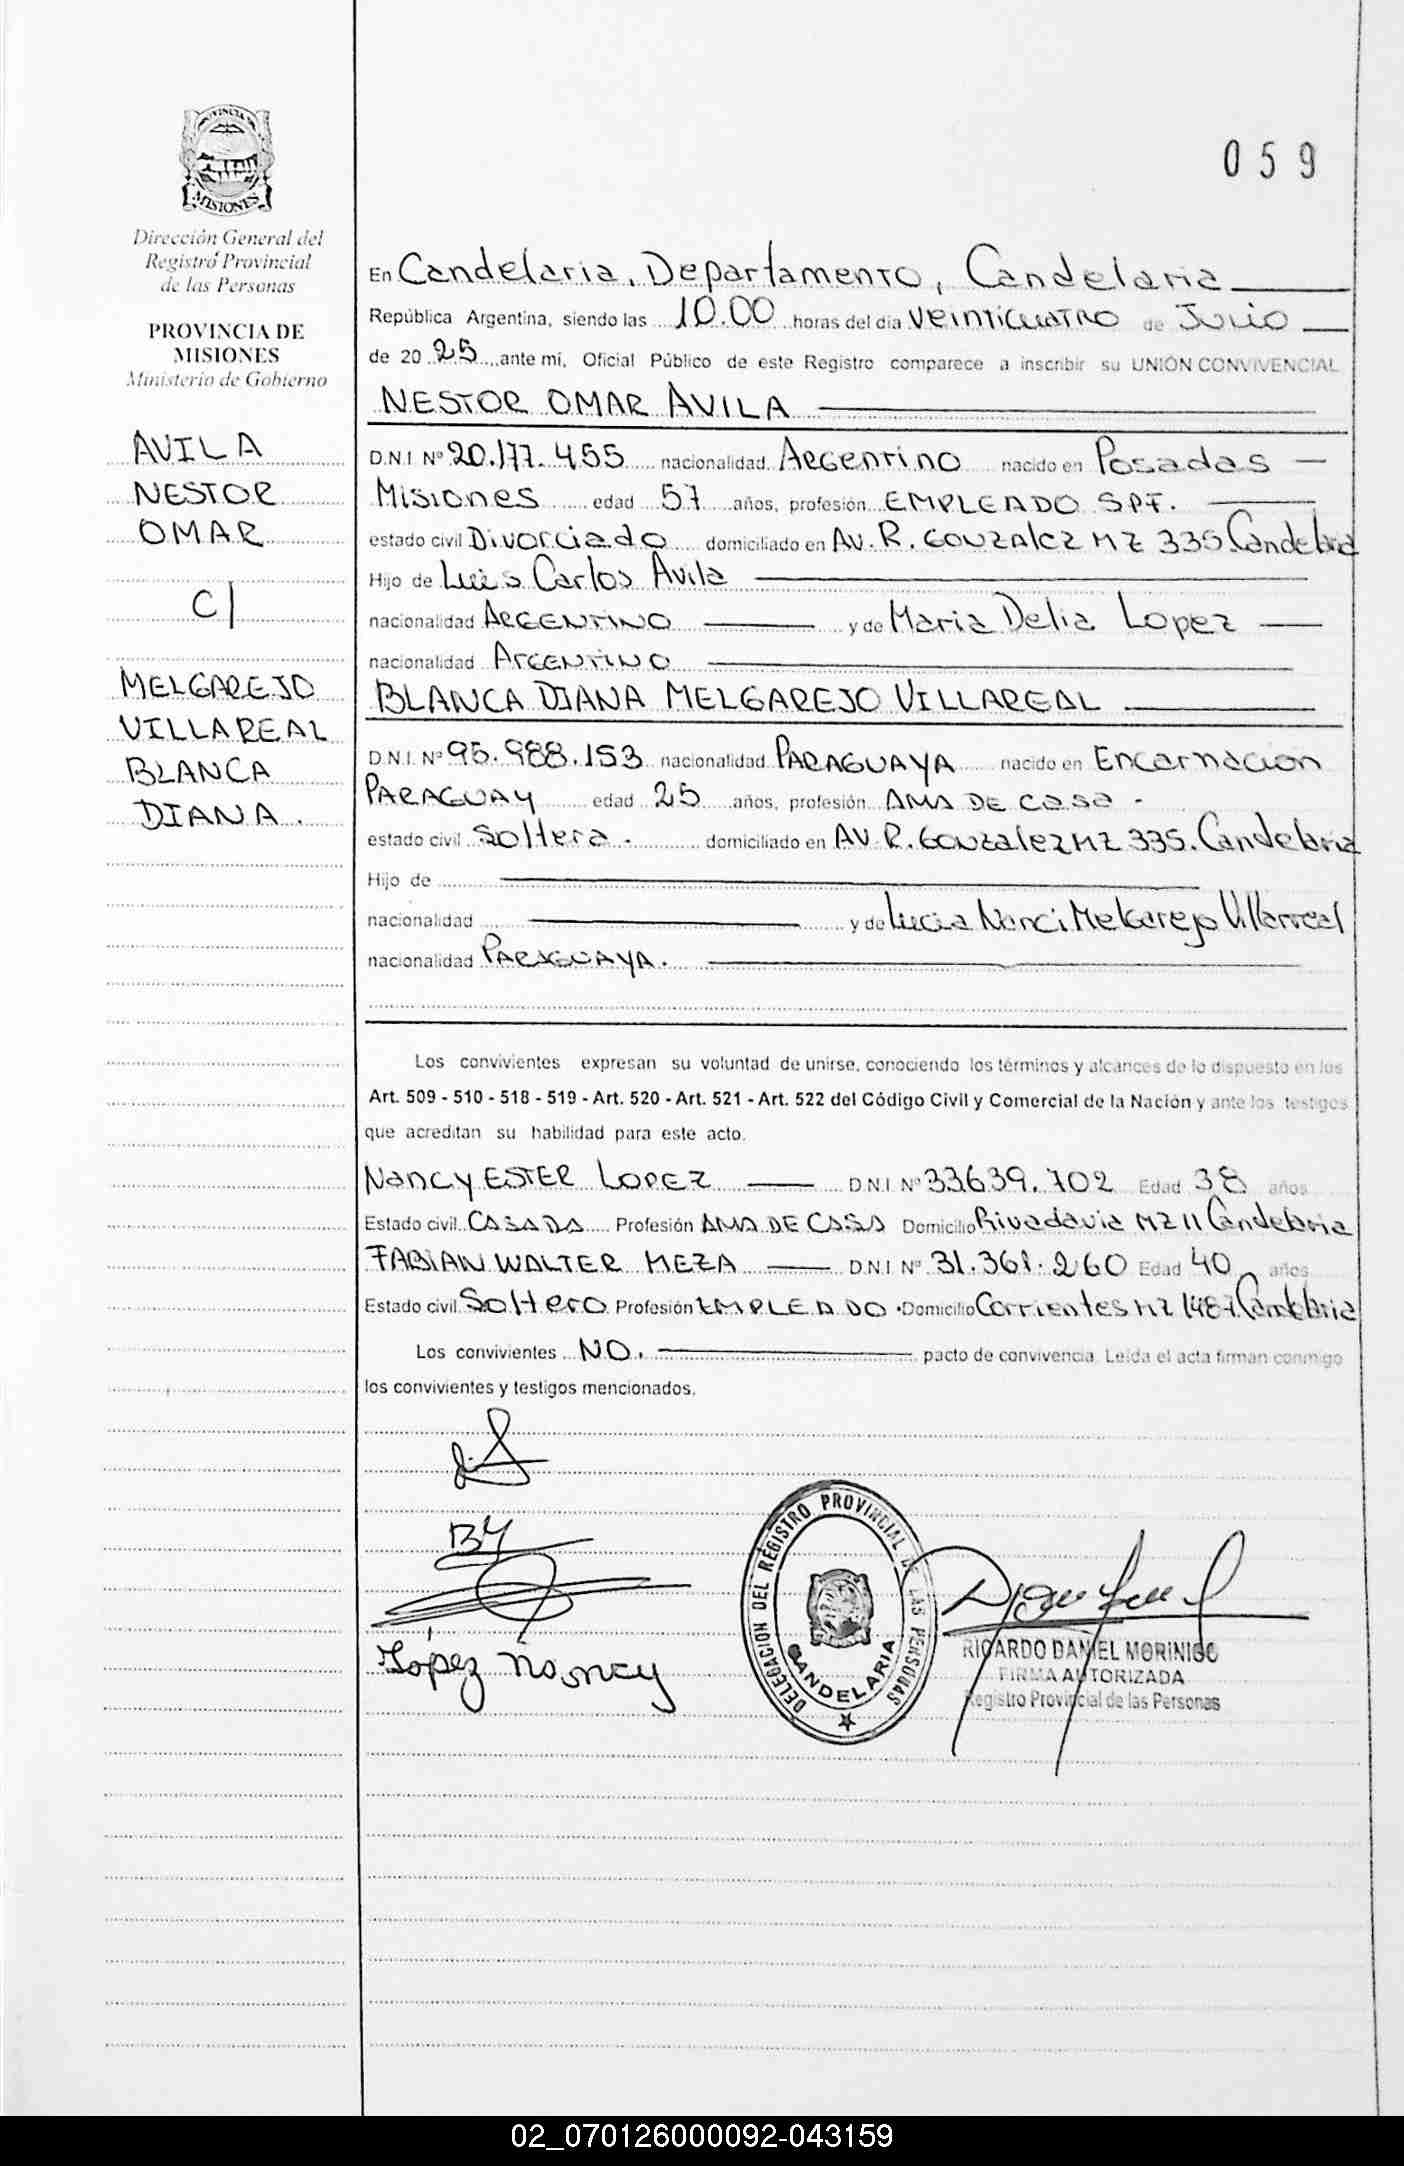 PROVINCIA DE
MISIONES
Dirección General del
Registro Provincial
de las Personas
PROVINCIA DE
MISIONES
Ministerio de Gobierno
AVILA
NESTOR
OMAR
C/
MELGAREJO
VILLAREAL
BLANCA
DIANA.
059
En Candelaria, Departamento, Candelaria
República Argentina, siendo las 10.00 horas del día VEINTICUATRO de JULIO
de 2025 ante mí, Oficial Público de este Registro comparece a inscribir su UNIÓN CONVIVENCIAL
NESTOR OMAR AVILA
D.N.I. Nº 20.177.455 nacionalidad Argentino nacido en Posadas
Misiones edad 57 años, profesión EMPLEADO SPF.
estado civil Divorciado domiciliado en AV. R. GONZALEZ MZ 335 Candelaria
Hijo de Luis Carlos Avila
nacionalidad ARGENTINO y de Maria Delia Lopez
nacionalidad ARGENTINO
BLANCA DIANA MELGAREJO VILLAREAL
D.N.I. Nº 95.988.153 nacionalidad PARAGUAYA nacido en Encarnacion
PARAGUAY edad 25 años, profesión AMA DE CASA -
estado civil Soltera. domiciliado en AV. R. Gonzalez MZ 335. Candelaria
Hijo de
nacionalidad y de Lucia Nanci Melgarejo Villarreal
nacionalidad PARAGUAYA.
Los convivientes expresan su voluntad de unirse, conociendo los términos y alcances de lo dispuesto en los
Art. 509 - 510 - 518 - 519 - Art. 520 - Art. 521 - Art. 522 del Código Civil y Comercial de la Nación y ante los testigos
que acreditan su habilidad para este acto.
Nancy ESTER LOPEZ D.N.I. Nº 33.639.702 Edad 38 años
Estado civil CASADA Profesión AMA DE CASA Domicilio Rivadavia MZ 11 Candelaria
FABIAN WALTER MEZA D.N.I. Nº 31.361.260 Edad 40 años
Estado civil Soltero Profesión EMPLEADO. Domicilio Corrientes MZ 148-7 Candelaria
Los convivientes NO. pacto de convivencia. Leída el acta firman conmigo
los convivientes y testigos mencionados.
López Nancy
DELEGACION DEL REGISTRO PROVINCIAL DE LAS PERSONAS
CANDELARIA
RICARDO DANIEL MORINIGO
FIRMA AUTORIZADA
Registro Provincial de las Personas
02_070126000092-043159